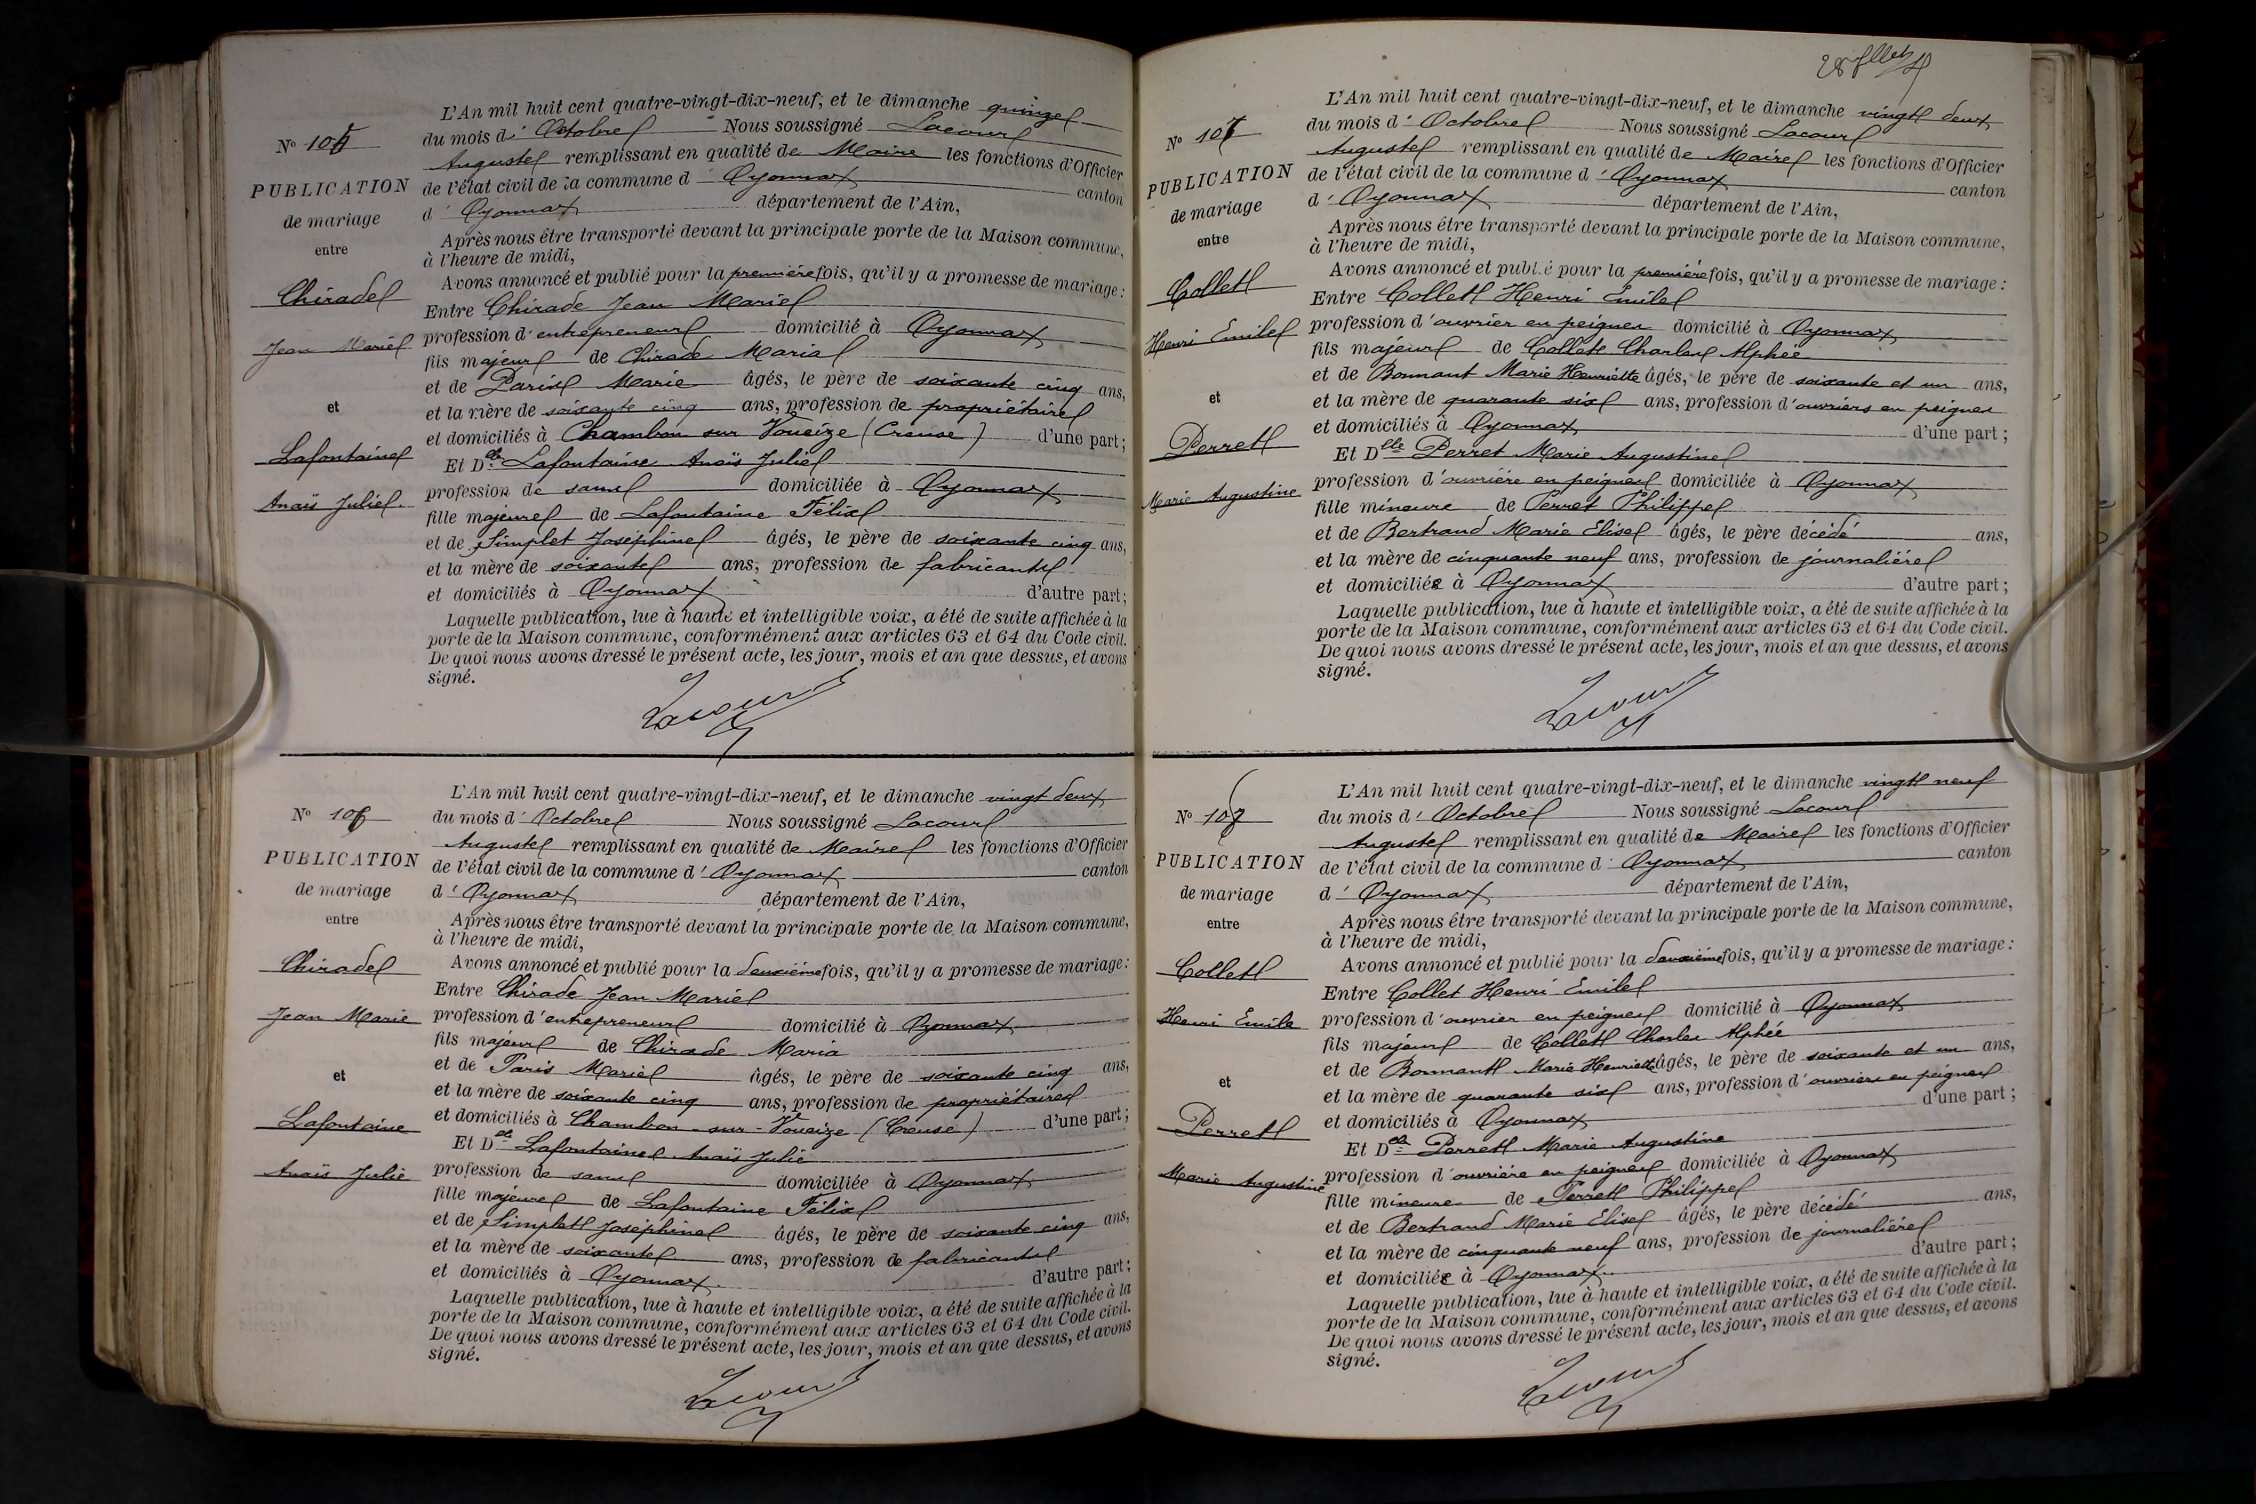 N° 105
PUBLICATION
de mariage
entre
Chirade
Jean Marie
et
Lafontaine
Anaïs Julie.
L'An mil huit cent quatre-vingt-dix-neuf, et le dimanche quinze
du mois d' Octobre Nous soussigné Lacour
Auguste remplissant en qualité de Maire les fonctions d'Officier
de l'état civil de la commune d' Oyonnax canton
d' Oyonnax département de l'Ain,
Après nous être transporté devant la principale porte de la Maison commune,
à l'heure de midi,
Avons annoncé et publié pour la première fois, qu'il y a promesse de mariage :
Entre Chirade Jean Marie
profession d'entrepreneur domicilié à Oyonnax
fils majeur de Chirade Maria
et de Paris Marie âgés, le père de soixante cinq ans,
et la mère de soixante cinq ans, profession de propriétaire
et domiciliés à Chambon sur Voueize (Creuse) d'une part ;
Et Dlle Lafontaine Anaïs Julie
profession de sans domiciliée à Oyonnax
fille majeure de Lafontaine Félix
et de Simplet Joséphine âgés, le père de soixante cinq ans,
et la mère de soixante ans, profession de fabricants
et domiciliés à Oyonnax d'autre part ;
Laquelle publication, lue à haute et intelligible voix, a été de suite affichée à la
porte de la Maison commune, conformément aux articles 63 et 64 du Code civil.
De quoi nous avons dressé le présent acte, les jour, mois et an que dessus, et avons
signé.
Lacour
N° 106
PUBLICATION
de mariage
entre
Chirade
Jean Marie
et
Lafontaine
Anaïs Julie
L'An mil huit cent quatre-vingt-dix-neuf, et le dimanche vingt deux
du mois d' Octobre Nous soussigné Lacour
Auguste remplissant en qualité de Maire les fonctions d'Officier
de l'état civil de la commune d' Oyonnax canton
d' Oyonnax département de l'Ain,
Après nous être transporté devant la principale porte de la Maison commune,
à l'heure de midi,
Avons annoncé et publié pour la deuxième fois, qu'il y a promesse de mariage :
Entre Chirade Jean Marie
profession d'entrepreneur domicilié à Oyonnax
fils majeur de Chirade Maria
et de Paris Marie âgés, le père de soixante cinq ans,
et la mère de soixante cinq ans, profession de propriétaires
et domiciliés à Chambon-sur-Voueize (Creuse) d'une part ;
Et Dlle Lafontaine Anaïs Julie
profession de sans domiciliée à Oyonnax
fille majeure de Lafontaine Félix
et de Simplet Joséphine âgés, le père de soixante cinq ans,
et la mère de soixante ans, profession de fabricants
et domiciliés à Oyonnax. d'autre part ;
Laquelle publication, lue à haute et intelligible voix, a été de suite affichée à la
porte de la Maison commune, conformément aux articles 63 et 64 du Code civil.
De quoi nous avons dressé le présent acte, les jour, mois et an que dessus, et avons
signé.
Lacour
28
N° 107
PUBLICATION
de mariage
entre
Collet
Henri Emile
et
Perret
Marie Augustine
L'An mil huit cent quatre-vingt-dix-neuf, et le dimanche vingt deux
du mois d' Octobre Nous soussigné Lacour
Auguste remplissant en qualité de Maire les fonctions d'Officier
de l'état civil de la commune d' Oyonnax canton
d' Oyonnax département de l'Ain,
Après nous être transporté devant la principale porte de la Maison commune,
à l'heure de midi,
Avons annoncé et publié pour la première fois, qu'il y a promesse de mariage :
Entre Collet Henri Emile
profession d'ouvrier en peignes domicilié à Oyonnax
fils majeur de Collet Charles Alphée
et de Bonnant Marie Henriette âgés, le père de soixante et un ans,
et la mère de quarante six ans, profession d'ouvriers en peignes
et domiciliés à Oyonnax d'une part ;
Et Dlle Perret Marie Augustine
profession d'ouvrière en peignes domiciliée à Oyonnax
fille mineure de Perret Philippe
et de Bertrand Marie Elise âgés, le père décédé ans,
et la mère de cinquante neuf ans, profession de journalière
et domiciliée à Oyonnax d'autre part ;
Laquelle publication, lue à haute et intelligible voix, a été de suite affichée à la
porte de la Maison commune, conformément aux articles 63 et 64 du Code civil.
De quoi nous avons dressé le présent acte, les jour, mois et an que dessus, et avons
signé.
Lacour
N° 108
PUBLICATION
de mariage
entre
Collet
Henri Emile
et
Perret
Marie Augustine
L'An mil huit cent quatre-vingt-dix-neuf, et le dimanche vingt neuf
du mois d' Octobre Nous soussigné Lacour
Auguste remplissant en qualité de Maire les fonctions d'Officier
de l'état civil de la commune d' Oyonnax canton
d' Oyonnax département de l'Ain,
Après nous être transporté devant la principale porte de la Maison commune,
à l'heure de midi,
Avons annoncé et publié pour la deuxième fois, qu'il y a promesse de mariage :
Entre Collet Henri Emile
profession d'ouvrier en peignes domicilié à Oyonnax
fils majeur de Collet Charles Alphée
et de Bonnant Marie Henriette âgés, le père de soixante et un ans,
et la mère de quarante six ans, profession d'ouvriers en peignes
et domiciliés à Oyonnax d'une part ;
Et Dlle Perret Marie Augustine
profession d'ouvrière en peignes domiciliée à Oyonnax
fille mineure de Perret Philippe
et de Bertrand Marie Elise âgés, le père décédé ans,
et la mère de cinquante neuf ans, profession de journalière
et domiciliée à Oyonnax. d'autre part ;
Laquelle publication, lue à haute et intelligible voix, a été de suite affichée à la
porte de la Maison commune, conformément aux articles 63 et 64 du Code civil.
De quoi nous avons dressé le présent acte, les jour, mois et an que dessus, et avons
signé.
Lacour